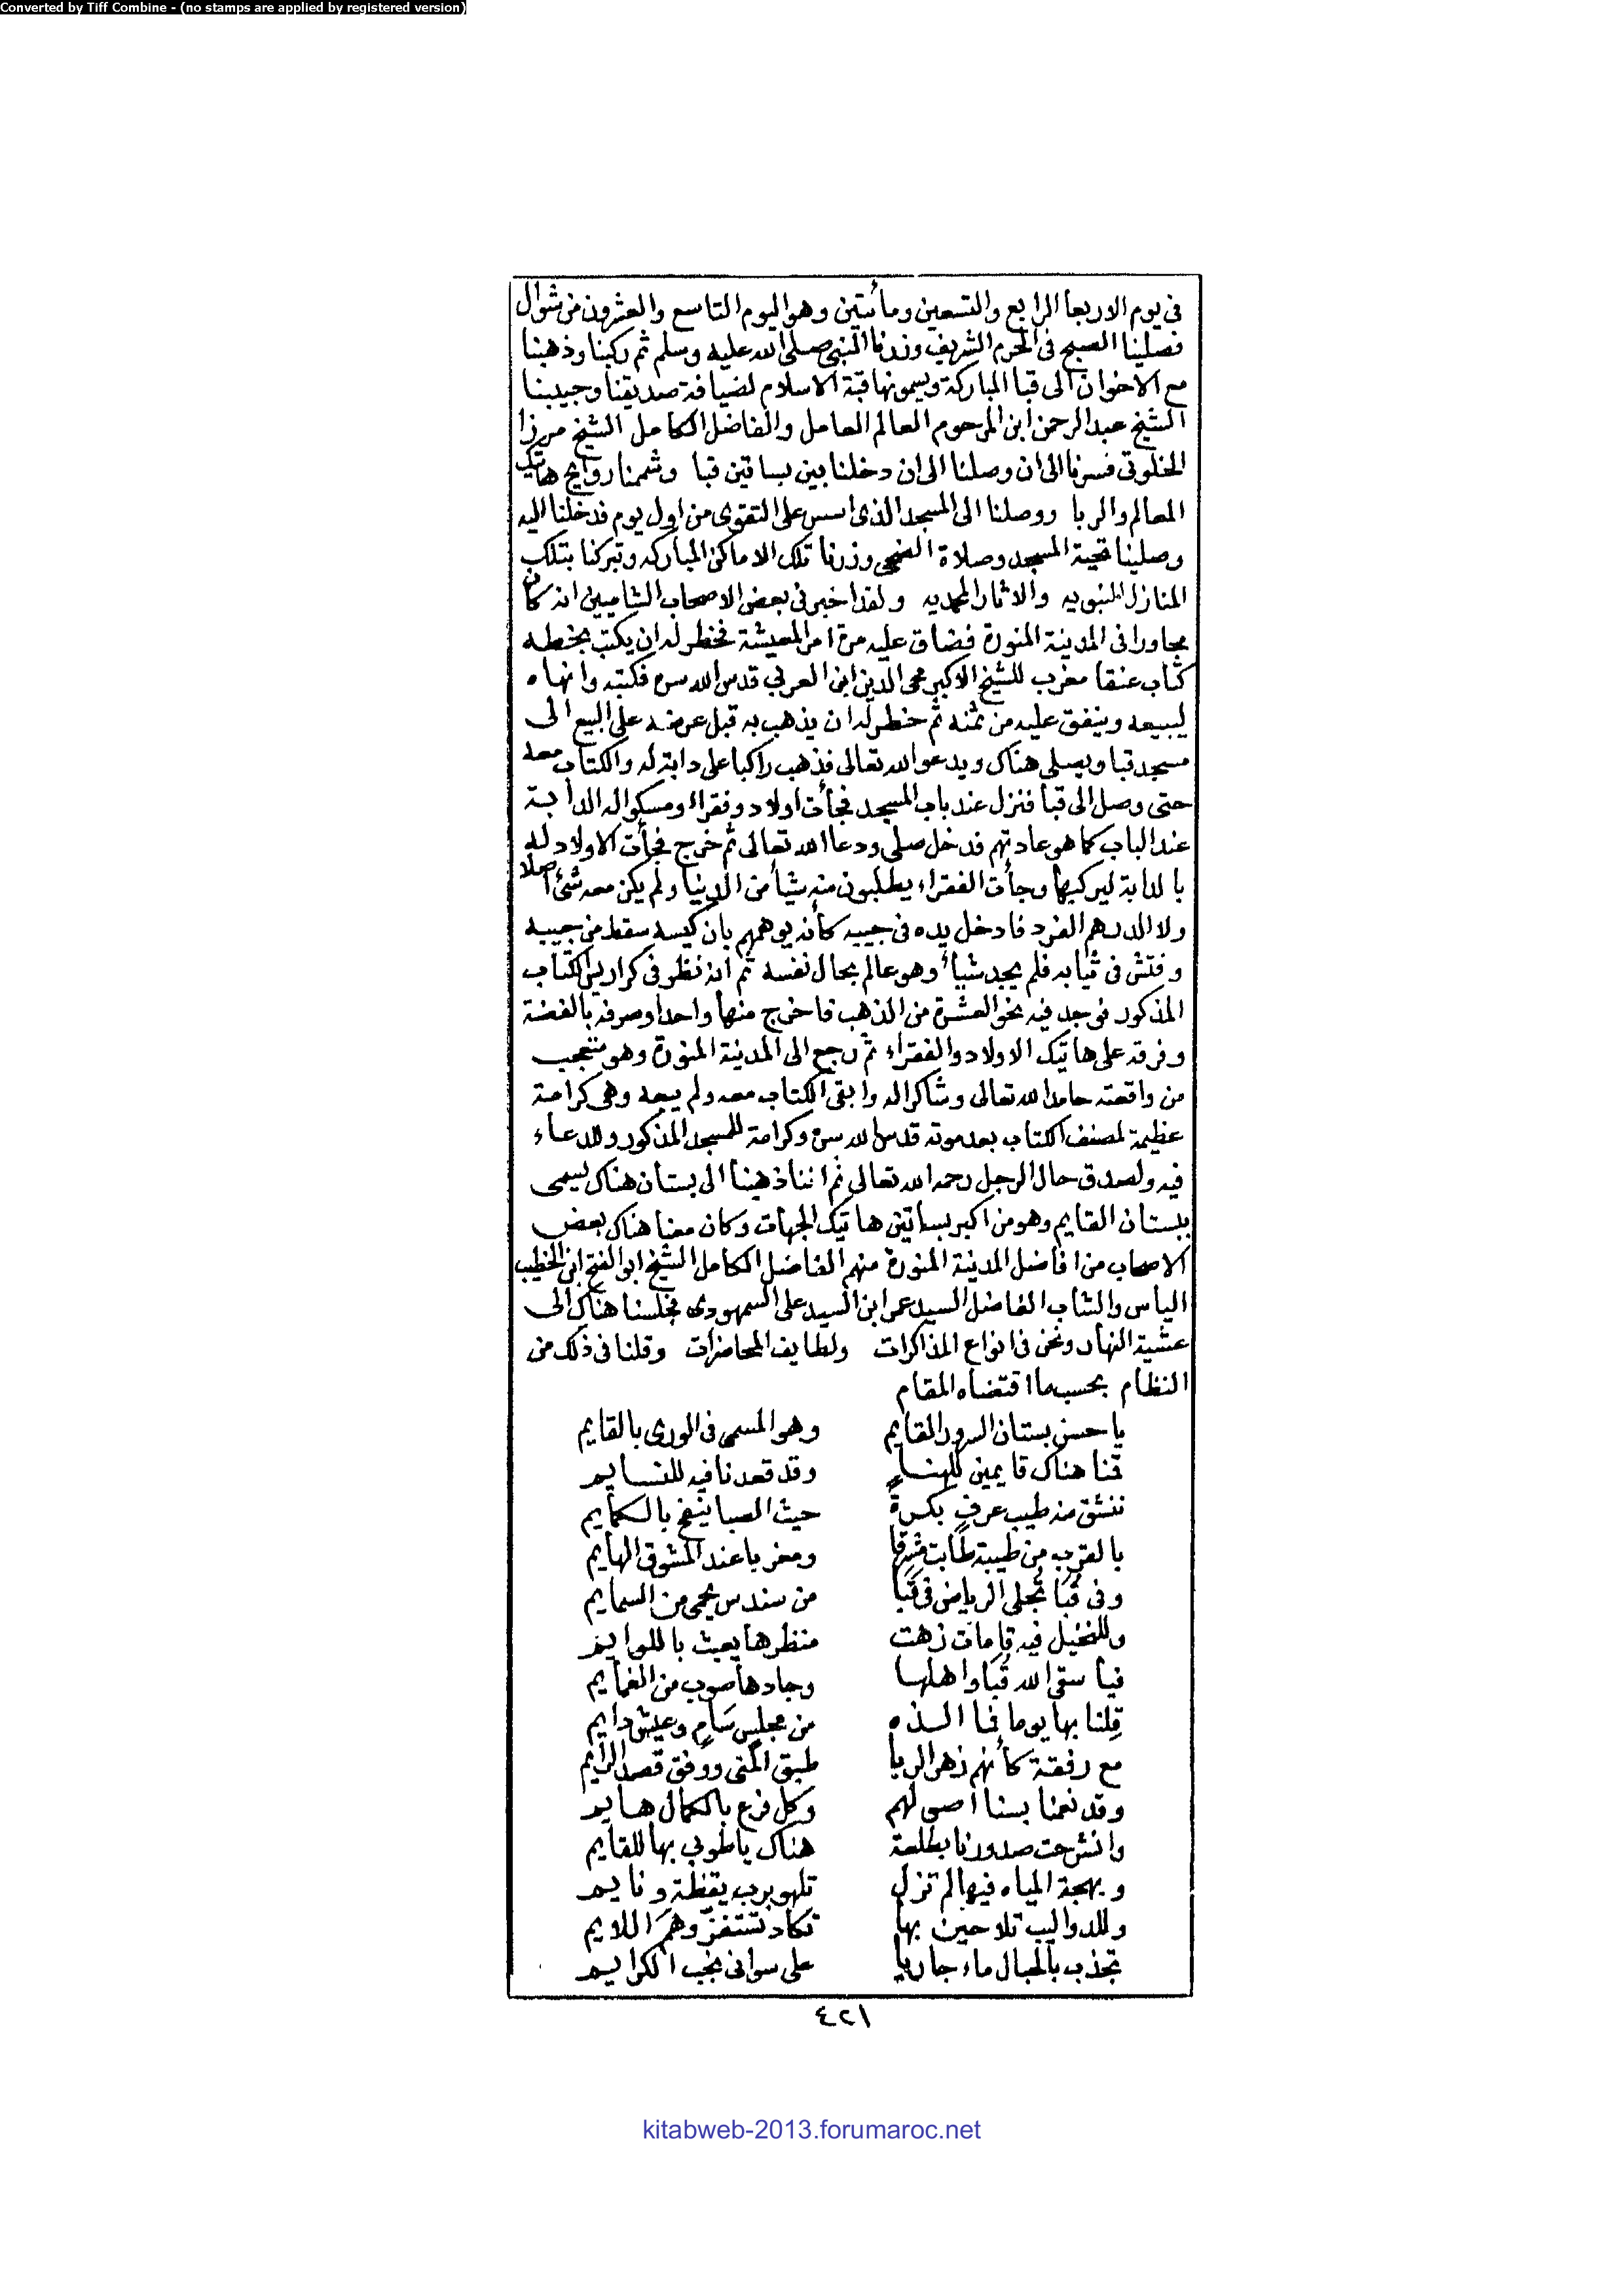 Converted by Tiff Combine - (no stamps are applied by registered version)
في يوم الاربعا الرابع والتسعين ومأتين وهو اليوم التاسع والعشرون من شوال
فصلينا الصبح في الحرم الشريف وزرنا النبي صلى الله عليه وسلم ثم ركبنا وذهبنا
مع الاخوان الى قبا المباركة ويسمونها قبة الاسلام لضيافة صديقنا وحبيبنا
الشيخ عبد الرحمن ابن المرحوم العالم العامل والفاضل الكامل الشيخ مرزا
الخلوتي فسرنا الى ان وصلنا الى ان دخلنا بين بساتين قبا وشممنا روايح هاتيك
المعالم والربا ووصلنا الى المسجد الذي اسس على التقوى من اول يوم فدخلنا اليه
وصلينا تحية المسجد وصلاة الضحى وزرنا تلك الاماكن المباركه وتبركنا بتلك
المنازل النبويه والاثار المحمديه ولقد اخبرني بعض الاصحاب الشاميين انه كان
مجاورا في المدينة المنورة فضاق عليه مرة امر المعيشة فخطر له ان يكتب بخطه
كتاب عنقا مغرب للشيخ الاكبر محي الدين ابن العربي قدس الله سره فكتبه وانهاه
ليبيعه وينفق عليه من ثمنه ثم خطر له ان يذهب به قبل عرضه على البيع الى
مسجد قبا ويصلي هناك ويدعو الله تعالى فذهب راكبا على دابة له والكتاب معه
حتى وصل الى قبا فنزل عند باب المسجد فجأت اولاد وفقراء ومسكوا له الدابة
عند الباب كما هو عادتهم فدخل صلى ودعا الله تعالى ثم خرج فجأت الاولاد له
بالدابة ليركبها وجأت الفقراء يطلبون منه شيأ من الدنيا ولم يكن معه شئ اصلا
ولا الدرهم الفرد فادخل يده في جيبه كأنه يوهمهم بان كيسه سقط من جيبه
وفتش في ثيابه فلم يجد شيأ وهو عالم بحال نفسه ثم انه نظر في كراريس الكتاب
المذكور فوجد فيه نحو العشرة من الذهب فاخرج منها واحدا وصرفه بالفضة
وفرقه على هاتيك الاولاد والفقراء ثم رجع الى المدينة المنورة وهو متعجب
من واقعته حامدا لله تعالى وشاكرا له وابقى الكتاب معه ولم يبعه وهي كرامة
عظيمة لمصنف الكتاب بعد موته قدس الله سره وكرامة للمسجد المذكور وللدعاء
فيه ولصدق حال الرجل رحمه الله تعالى ثم اننا ذهبنا الى بستان هناك يسمى
ببستان القايم وهو من اكبر بساتين هاتيك الجهات وكان معنا هناك بعض
الاصحاب من افاضل المدينة المنورة منهم الفاضل الكامل الشيخ ابو الفتح ابن الخطيب
الياس والشاب الفاضل السيد عمر ابن السيد على السمهودي فجلسنا هناك الى
عشية النهار ونحن في انواع المذاكرات ولطايف المحاضرات وقلنا في ذلك من
النظام بحسب ما اقتضاه المقام
يا حسن بستان السرور القايم وهو المسمى في الورى بالقايم
قمنا هناك قايمين للهناء وقد قعدنا فيه للنسايم
ننشق منه طيب عرف بكرة حيث الصبا ينفح بالكمايم
بالقرب من طيبة طابت مشرقا ومغربا عند المشوق الهايم
وفي قُبَا تجلى الرياض في قَبَا من سندس يحمى من السمايم
وللنخيل فيه قامات زهت منظرها يعبث باللوايم
فيا سقى الله قُبَا واهلها وجادها صوب من الغمايم
قِلنا بها يوما فما الذه من مجلس سَامٍ وعيش دايم
مع رفقة كأنهم زهر الربا طبق المنى ووفق قصد الرايم
وقد نعمنا بسنا اصولهم وكل فرع بالكمال هايم
وانشرحت صدورنا بطلعة هناك يا طوبى بها للقايم
وبهجة المياه فيها لم تزل تلهو برب يقظة ونايم
وللدواليب تلاحين بها تكاد تستفز وهم اللايم
تجذب بالحبال ماء جاريا على سواني نجب الكرايم
٤٢١
kitabweb-2013.forumaroc.net